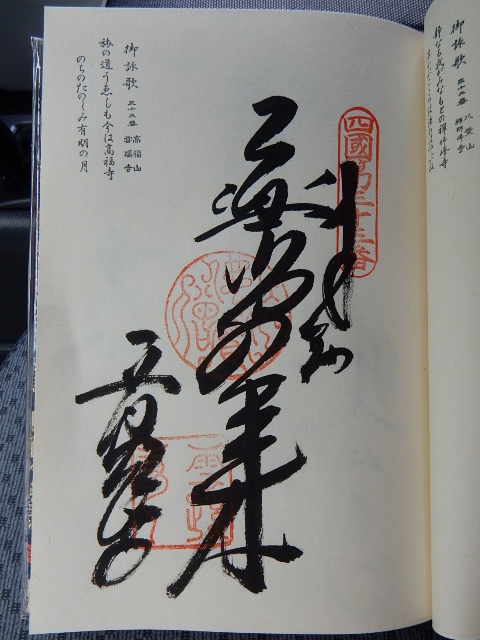 御詠歌 三十二番 八葉山 禅師峰寺
静かなる我がみなもとの禅師峰寺
四國第三十三番
奉納
薬師如来
雪蹊寺
御詠歌 三十三番 高福山 雪蹊寺
旅の道うゑしも今は高福寺
のちのたのしみ有明の月